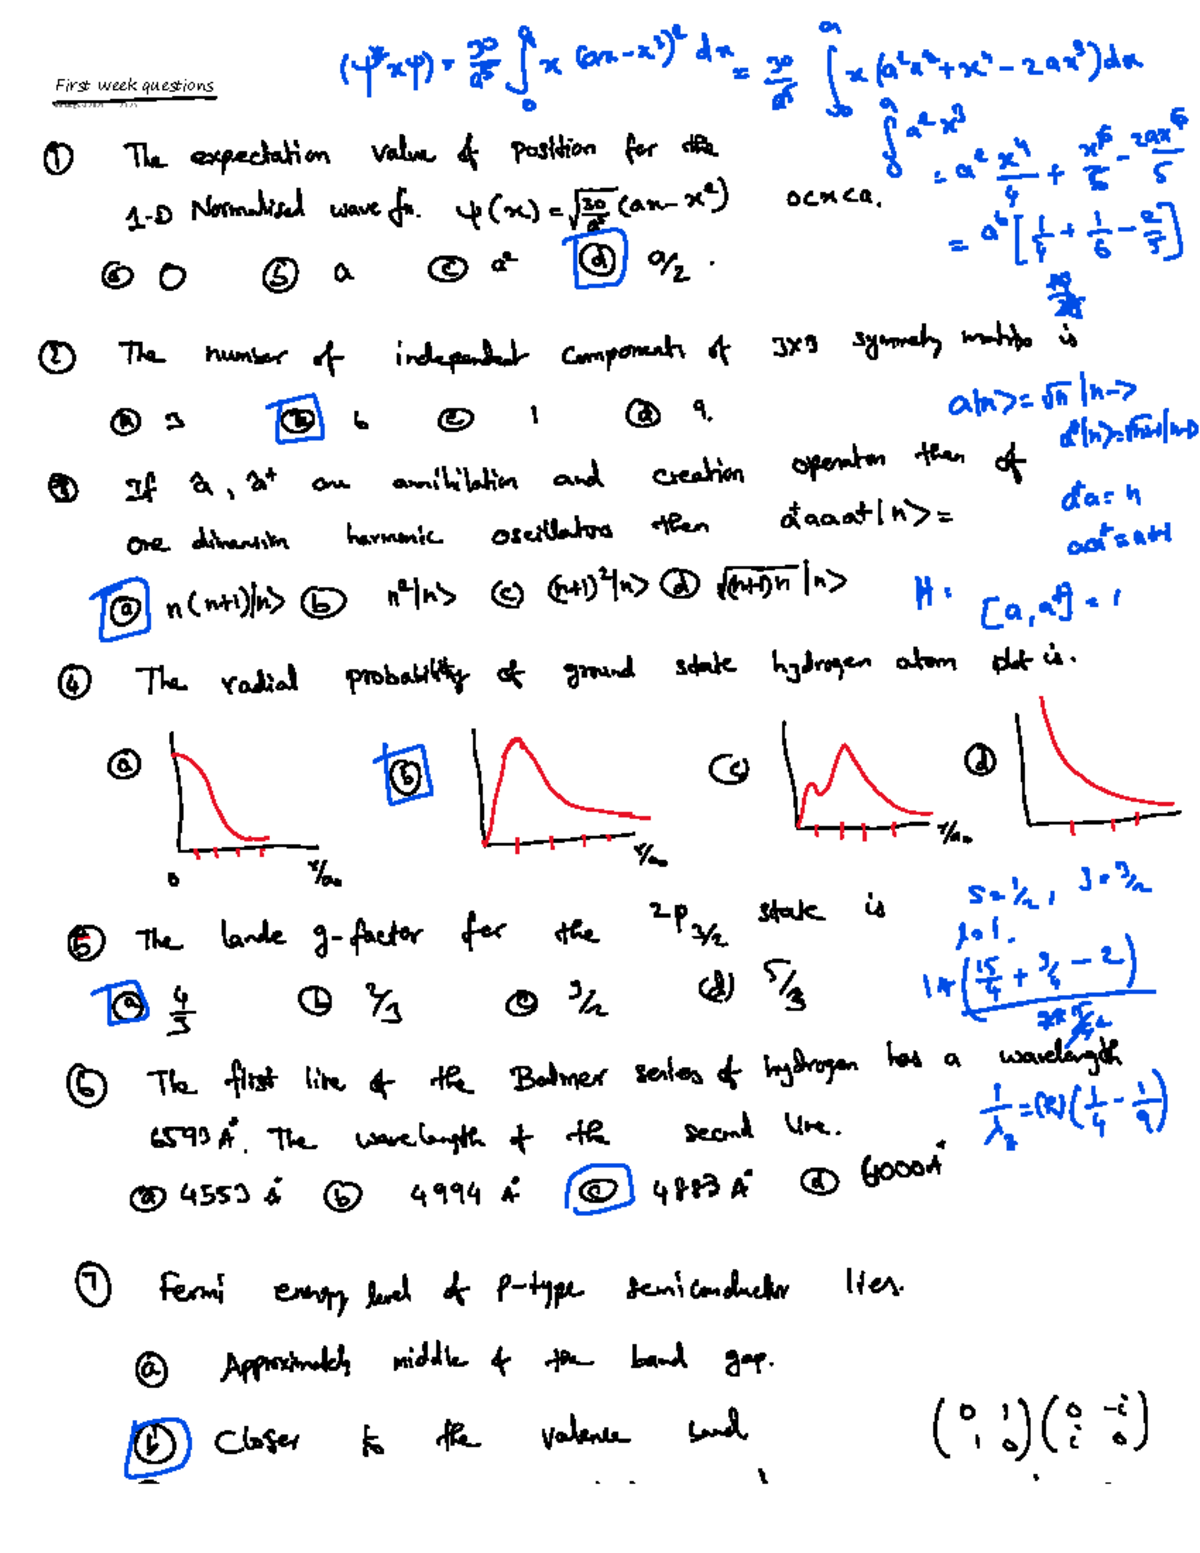 First week questions
(ψ* x ψ) = 30/a⁵ ∫₀ᵃ x (ax - x²)² dx = 30/a⁵ ∫₀ᵃ x (a²x² + x⁴ - 2ax³) dx
∫₀ᵃ a² x³
= a² x⁴/4 + x⁶/6 - 2ax⁵/5
= a⁶ [1/4 + 1/6 - 2/5]
① The expectation value of position for the
1-D Normalised wave fn. ψ(x) = √(30/a⁵) (ax - x²) 0<x<a.
ⓐ 0 ⓑ a ⓒ a² ⓓ a/2 .
② The number of independent components of 3x3 symmetry matrix is
ⓐ 3 ⓑ 6 ⓒ 1 ⓓ 9.
a|n> = √n |n->
a⁺|n> = √n+1 |n+1>
③ If â, â⁺ are annihilation and creation operator then of
one dimension harmonic oscillators then a⁺aaa⁺|n> =
a⁺a = n
aa⁺ = n+1
ⓐ n(n+1)|n> ⓑ n²|n> ⓒ (n+1)²|n> ⓓ √(n+1)n |n>
H =
[a, a⁺] = 1
④ The radial probability of ground state hydrogen atom plot is.
ⓐ ⓑ ⓒ ⓓ
0 r/a₀ r/a₀ r/a₀
S = 1/2, J = 3/2
l = 1.
⑤ The lande g-factor for the 2P3/2 state is
1 + (15/4 + 3/4 - 2)
ⓐ 4/3 ⓑ 2/3 ⓒ 3/2 (d) 5/3
⑥ The flist line of the Balmer series of hydrogen has a wavelength
6593 A°. The wavelength of the second line.
1/λ₂ = (R) (1/4 - 1/9)
ⓐ 4553 A° ⓑ 4994 A° ⓒ 4883 A° ⓓ 6000A°
⑦ Fermi energy level of P-type semiconductor lies.
ⓐ Approximately middle of the band gap.
ⓑ Closer to the valence band
(0 1 (0 -i
1 0) i 0)